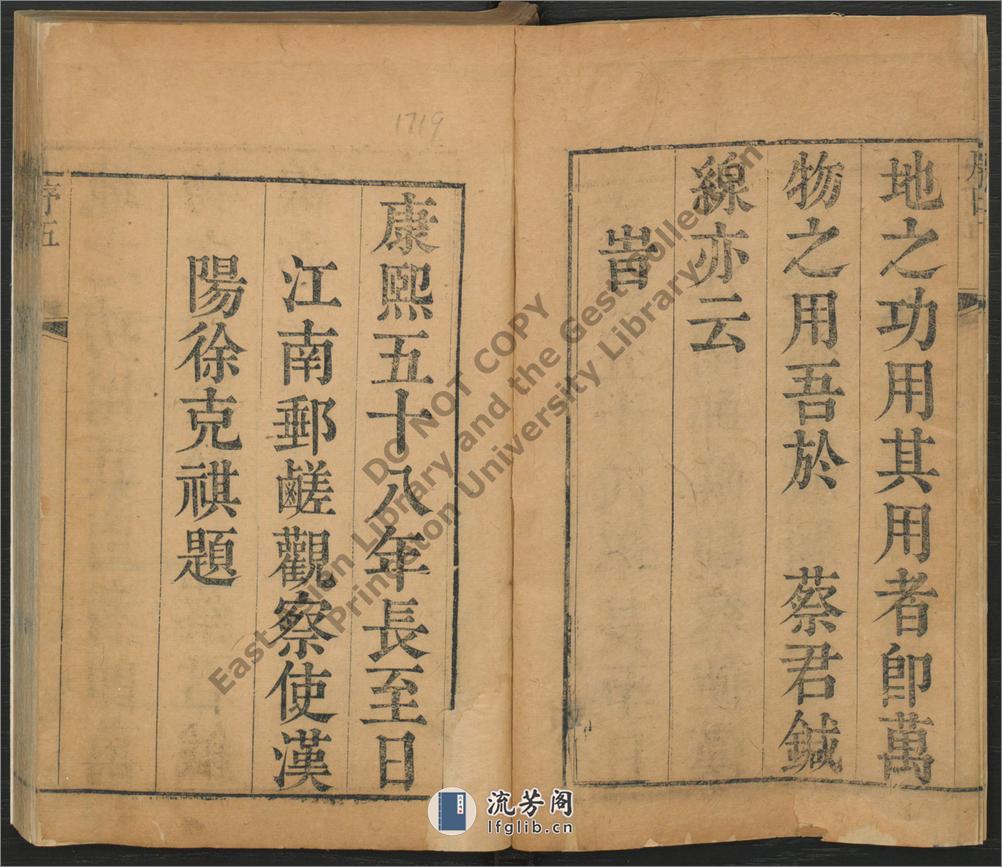 地之功用其用者卽萬
物之用吾於 蔡君鍼
線亦云
旹
康熙五十八年長至日
江南郵鹺觀察使漢
陽徐克祺題
序五
1719
DO NOT COPY
East Asian Library and the Gest Collection
Princeton University Library
流芳阁
lfglib.cn